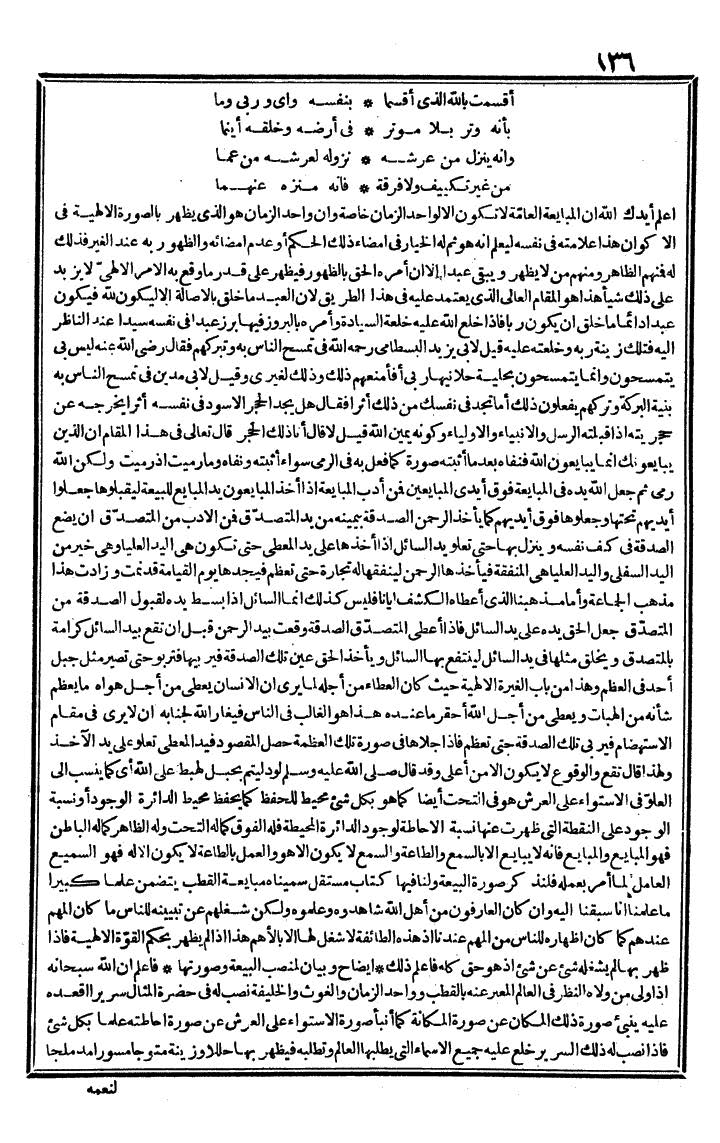 ١٣٦
أقسمت بالله الذي أقسما * بنفسه واى وربى وما
بأنه وتر بلا موتر * فى أرضه وخلقه أينما
وانه ينزل من عرشه * نزوله لعرشه من عما
من غير تكييف ولا فرقة * فانه منزه عنهما
اعلم أيدك الله ان المبايعة العامّة لا تكون الا لواحد الزمان خاصة وان واحد الزمان هو الذى يظهر بالصورة الالهية فى
الاكوان هذا علامته فى نفسه ليعلم انه هو ثم له الخيار فى امضاء ذلك الحكم أو عدم امضائه والظهور به عند الغير فذلك
له فمنهم الظاهر ومنهم من لا يظهر ويبقى عبدا الا ان أمره الحق بالظهور فيظهر على قدر ما وقع به الامر الالهىّ لا يزيد
على ذلك شيأ هذا هو المقام العالى الذى يعتمد عليه فى هذا الطريق لان العبد ما خلق بالاصالة الا ليكون لله فيكون
عبدا دائما ما خلق ان يكون ربا فاذا خلع الله عليه خلعة السيادة وأمره بالبروز فيها برز عبدا فى نفسه سيدا عند الناظر
اليه فتلك زينة ربه وخلعته عليه قيل لابى يزيد البسطامى رحمه الله فى تمسح الناس به وتبركهم فقال رضى الله عنه ليس بى
يتمسحون وانما يتمسحون بحلية حلانيها ربى أفأمنعهم ذلك وذلك لغيرى وقيل لابى مدين فى تمسح الناس به
بنية البركة وتركهم يفعلون ذلك أما تجد فى نفسك من ذلك أثرا فقال هل يجد الحجر الاسود فى نفسه أثرا يخرجه عن
حجريته اذا قبلته الرسل والانبياء والاولياء وكونه يمين الله قيل لا قال أنا ذلك الحجر قال تعالى فى هذا المقام ان الذين
يبايعونك انما يبايعون الله فنفاه بعد ما أثبته صورة كما فعل به فى الرمى سواء أثبته ونفاه وما رميت اذ رميت ولكن الله
رمى ثم جعل الله يده فى المبايعة فوق أيدى المبايعين فمن أدب المبايعة اذا أخذ المبايعون يد المبايع للبيعة ليقبلوها جعلوا
أيديهم تحتها وجعلوها فوق أيديهم كما يأخذ الرحمن الصدقة بيمينه من يد المتصدّق فمن الادب من المتصدّق ان يضع
الصدقة فى كف نفسه وينزل بها حتى تعلو يد السائل اذا أخذها على يد المعطى حتى تكون هى اليد العليا وهى خير من
اليد السفلى واليد العليا هى المنفقة فيأخذها الرحمن لينفقها له تجارة حتى تعظم فيجدها يوم القيامة قد نمت وزادت هذا
مذهب الجماعة وأما مذهبنا الذى أعطاه الكشف ايانا فليس كذلك انما السائل اذا بسط يده لقبول الصدقة من
المتصدّق جعل الحق يده على يد السائل فاذا أعطى المتصدّق الصدقة وقعت بيد الرحمن قبل ان تقع بيد السائل كرامة
بالمتصدق ويخلق مثلها فى يد السائل لينتفع بها السائل ويأخذ الحق عين تلك الصدقة فيربيها فتربو حتى تصير مثل جبل
أحد فى العظم وهذا من باب الغيرة الالهية حيث كان العطاء من أجله لما يرى ان الانسان يعطى من أجل هواه ما يعظم
شأنه من الهبات ويعطى من أجل الله أحقر ما عنده هذا هو الغالب فى الناس فيغار الله لجنابه ان لا يرى فى مقام
الاستهضام فيربى تلك الصدقة حتى تعظم فاذا جلاها فى صورة تلك العظمة حصل المقصود فيد المعطى تعلو على يد الآخذ
ولهذا قال تقع والوقوع لا يكون الا من أعلى وقد قال صلى الله عليه وسلم لو دليتم بحبل لهبط على الله أى كما ينسب الى
العلوّ فى الاستواء على العرش هو فى التحت أيضا كما هو بكل شئ محيط للحفظ كما يحفظ محيط الدائرة الوجود أو نسبة
الوجود على النقطة التى ظهرت عنها نسبة الاحاطة لوجود الدائرة المحيطة فله الفوق كماله التحت وله الظاهر كماله الباطن
فهو المبايع والمبايع فانه لا يبايع الا بالسمع والطاعة والسمع لا يكون الا هو والعمل بالطاعة لا يكون الا له فهو السميع
العامل لما أمر بعمله فلنذكر صورة البيعة ولنا فيها كتاب مستقل سميناه مبايعة القطب يتضمن علما كبيرا
ما علمنا انا سبقنا اليه وان كان العارفون من أهل الله شاهدوه وعلموه ولكن شغلهم عن تبيينه للناس ما كان المهم
عندهم كما كان اظهاره للناس من المهم عندنا اذ هذه الطائفة لا شغل لها الا بالأهم هذا اذا لم يظهر بحكم القوّة الالهية فاذا
ظهر بها لم يشغله شئ عن شئ اذ هو حق كله فاعلم ذلك * ايضاح وبيان لمنصب البيعة وصورتها * فاعلم ان الله سبحانه
اذا ولى من ولاه النظر فى العالم المعبر عنه بالقطب وواحد الزمان والغوث والخليفة نصب له فى حضرة المثال سريرا اقعده
عليه ينبئ صورة ذلك المكان عن صورة المكانة كما أنبأ صورة الاستواء على العرش عن صورة احاطته علما بكل شئ
فاذا نصب له ذلك السرير خلع عليه جميع الاسماء التى يطلبها العالم وتطلبه فيظهر بها حللا وزينة متوجا مسورا مدملجا
لتعمه